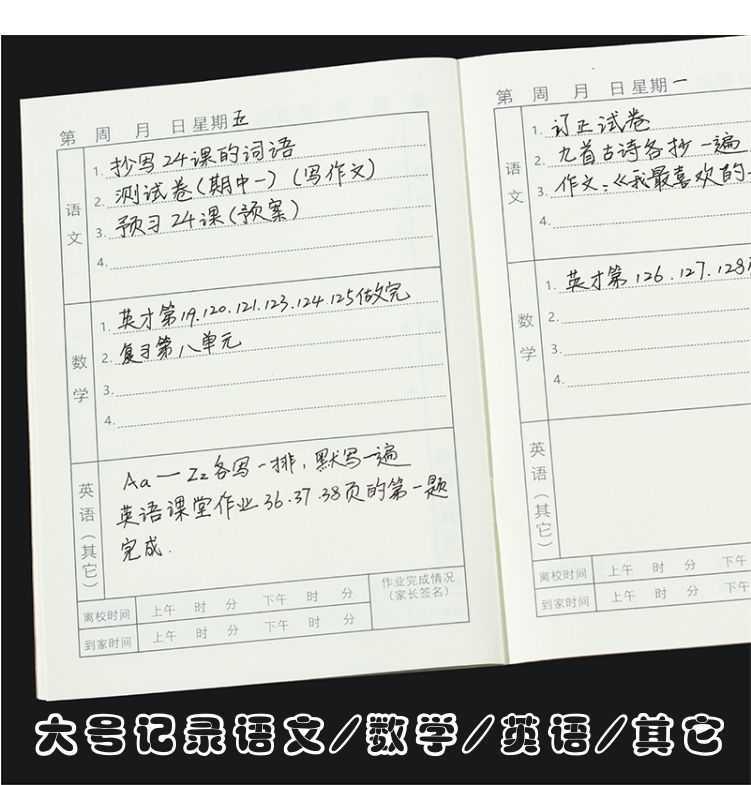 第 周 月 日 星期五
语文
1. 抄写24课的词语
2. 测试卷(期中一)(写作文)
3. 预习24课(预案)
4.
数学
1. 英才第19.120.121.123.124.125做完
2. 复习第八单元
3.
4.
英语(其它)
Aa一Zz各写一排,默写一遍
英语课堂作业36.37.38页的第一题
完成.
离校时间 上午 时 分 下午 时 分
到家时间 上午 时 分 下午 时 分
作业完成情况
(家长签名)
第 周 月 日 星期一
语文
1. 订正试卷
2. 九首古诗各抄一遍
3. 作文:《我最喜欢的
4.
数学
1. 英才第126.127.128
2.
3.
4.
英语(其它)
离校时间 上午 时 分 下午
到家时间 上午 时 分 下午
大号记录语文/数学/英语/其它